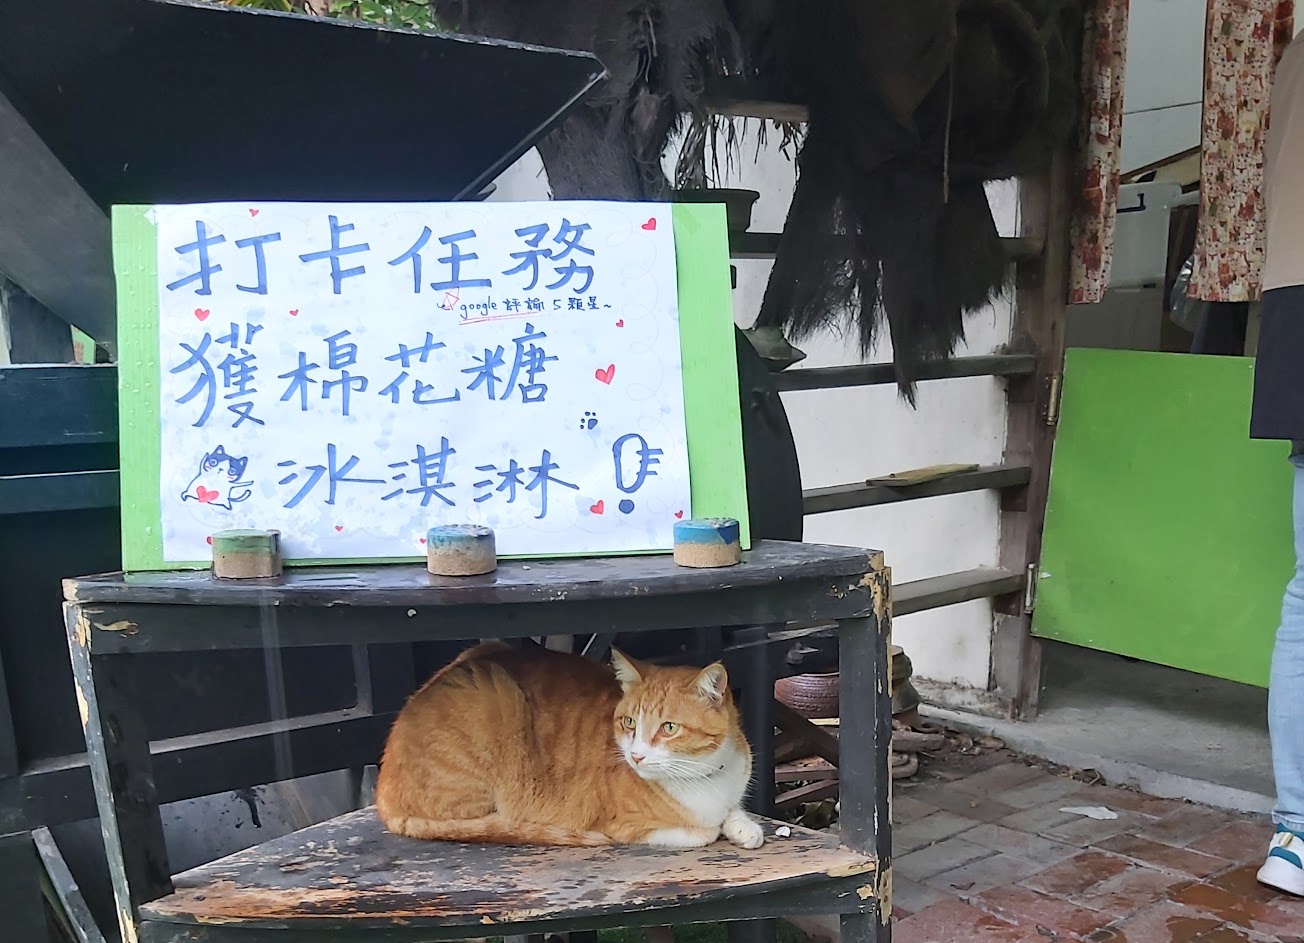 打卡任務
google 評論 5 顆星~
獲棉花糖
冰淇淋!